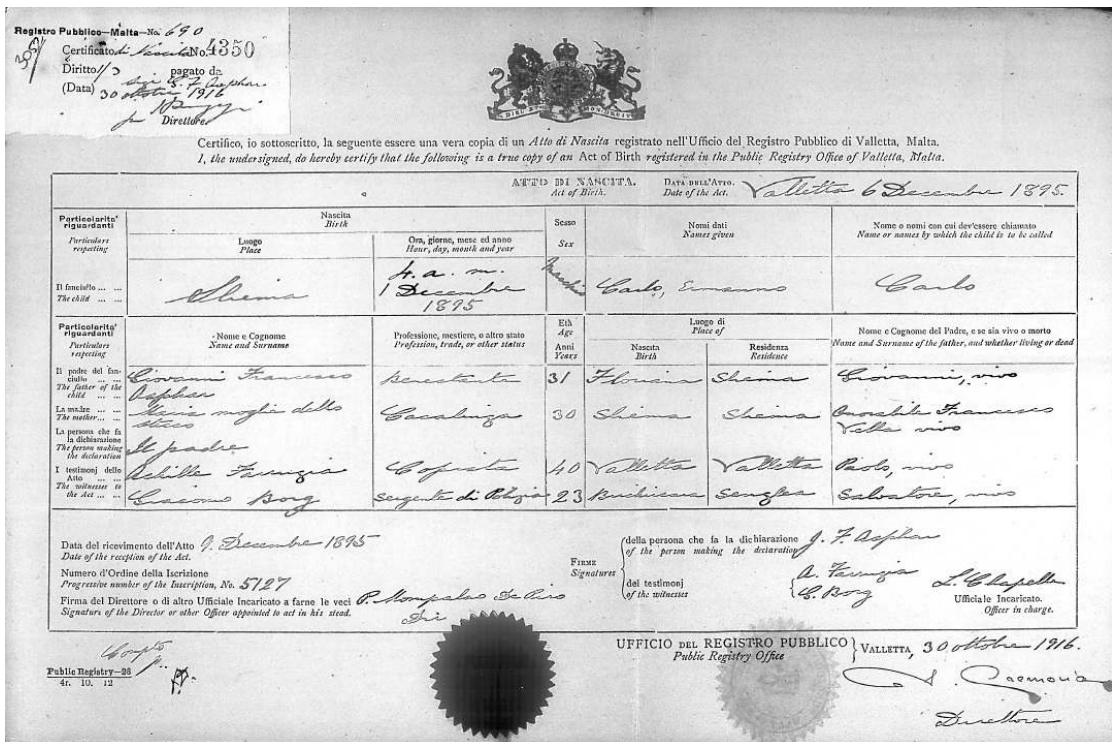 Registro Pubblico—Malta—No. 690
Certificato di Nascita No. 4350
Diritto 1/3 pagato da
(Data) 30 ottobre 1916
Direttore
Certifico, io sottoscritto, la seguente essere una vera copia di un Atto di Nascita registrato nell'Ufficio del Registro Pubblico di Valletta, Malta.
I, the undersigned, do hereby certify that the following is a true copy of an Act of Birth registered in the Public Registry Office of Valletta, Malta.
ATTO DI NASCITA. DATA DELL'ATTO. Valletta 6 Decembre 1895.
Act of Birth. Date of the Act.
Particolarita' riguardanti
Particulars respecting
Nascita
Birth
Luogo
Place
Ora, giorno, mese ed anno
Hour, day, month and year
Sesso
Sex
Nomi dati
Names given
Nome o nomi con cui dev'essere chiamato
Name or names by which the child is to be called
Il fanciullo ... ...
The child ... ...
Sliema
4. a. m.
1 Decembre
1895
Maschio
Carlo, Ermanno
Carlo
Particolarita' riguardanti
Particulars respecting
Nome e Cognome
Name and Surname
Professione, mestiere, o altro stato
Profession, trade, or other status
Età
Age
Anni
Years
Luogo di
Place of
Nascita
Birth
Residenza
Residence
Nome e Cognome del Padre, e se sia vivo o morto
Name and Surname of the father, and whether living or dead
Il padre del fanciullo ... ...
The father of the child ... ...
Giovanni Francesco Asphar
Benestante
31
Floriana
Sliema
Giovanni, vivo
La madre ... ...
The mother ... ...
Maria moglie dello stesso
Casalinga
30
Sliema
Sliema
Onorabile Francesco Vella vivo
La persona che fa la dichiarazione
The person making the declaration
Il padre
I testimonj dello Atto ... ...
The witnesses to the Act ... ...
Achille Farrugia
Copista
40
Valletta
Valletta
Paolo, vivo
Giacomo Borg
Sergente di Polizia
23
Birchircara
Senglea
Salvatore, vivo
Data del ricevimento dell'Atto 9. Decembre 1895
Date of the reception of the Act.
Numero d'Ordine della Iscrizione
Progressive number of the Inscription, No. 5127
Firma del Direttore o di altro Ufficiale Incaricato a farne le veci P. Mompalao
Signature of the Director or other Officer appointed to act in his stead. Dir
FIRME
Signatures
della persona che fa la dichiarazione G. F. Asphar
of the person making the declaration
dei testimonj
of the witnesses
A. Farrugia
G. Borg
L. Chapelle
Ufficiale Incaricato.
Officer in charge.
Public Registry—26
4r. 10. 12
UFFICIO DEL REGISTRO PUBBLICO
Public Registry Office
VALLETTA, 30 ottobre 1916.
Direttore